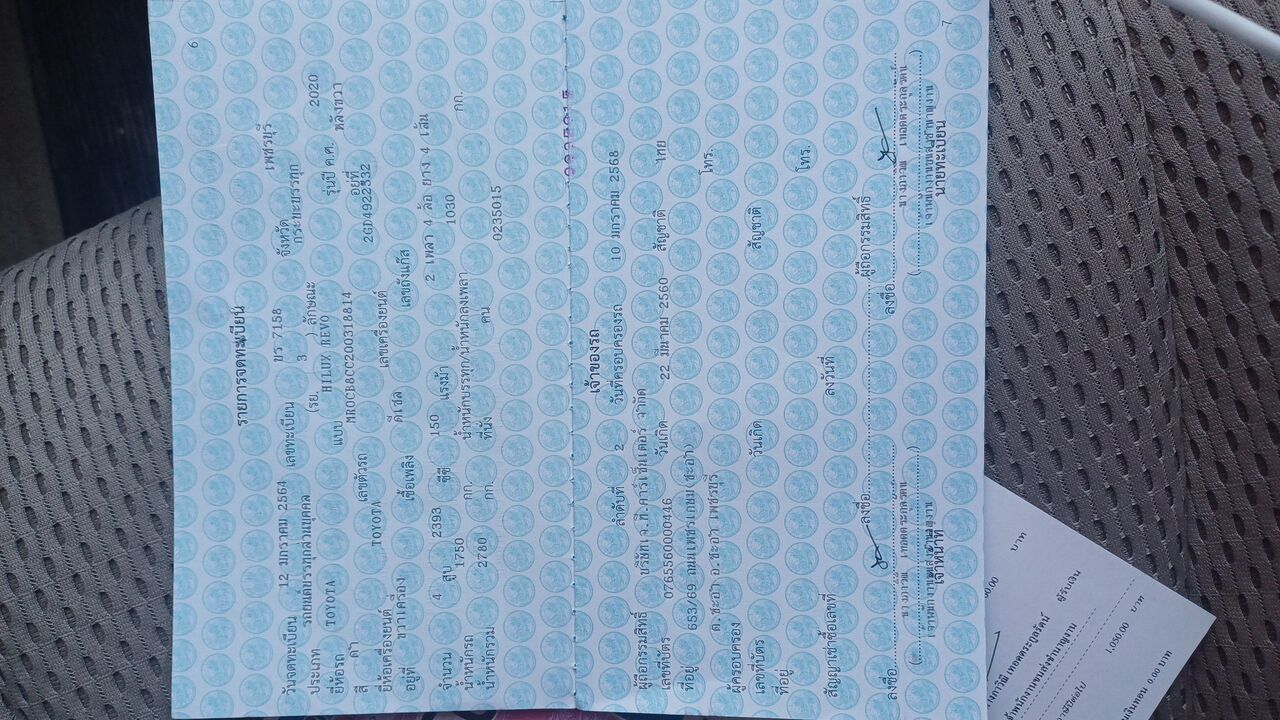 6
รายการจดทะเบียน
วันจดทะเบียน 12 มกราคม 2564 เลขทะเบียน บร 7158 จังหวัด เพชรบุรี
ประเภท รถยนต์บรรทุกส่วนบุคคล (รย. 3 ) ลักษณะ กระบะบรรทุก
ยี่ห้อรถ TOYOTA แบบ HILUX REVO รุ่นปี ค.ศ. 2020
สี ดำ เลขตัวรถ MR0CB8CC200318814 อยู่ที่ หลังขวา
ยี่ห้อเครื่องยนต์ TOYOTA เลขเครื่องยนต์ 2GD4922532
อยู่ที่ ขวาเครื่อง เชื้อเพลิง ดีเซล เลขถังแก๊ส
จำนวน 4 สูบ 2393 ซีซี 150 แรงม้า 2 เพลา 4 ล้อ ยาง 4 เส้น
น้ำหนักรถ 1750 กก. น้ำหนักบรรทุก/น้ำหนักลงเพลา 1030 กก.
น้ำหนักรวม 2780 กก. ที่นั่ง คน
0235015
7
เจ้าของรถ
ลำดับที่ 2 วันที่ครอบครองรถ 10 มกราคม 2568
ผู้ถือกรรมสิทธิ์ บริษัท เจ.ที.คาร์เซ็นเตอร์ จำกัด
เลขที่บัตร 0765560000446 วันเกิด 22 มีนาคม 2560 สัญชาติ ไทย
ที่อยู่ 653/69 ถนนเพชรเกษม ชะอำ โทร.
ต.ชะอำ อ.ชะอำ เพชรบุรี
ผู้ครอบครอง
เลขที่บัตร วันเกิด สัญชาติ
ที่อยู่ โทร.
สัญญาเช่าซื้อเลขที่ ลงวันที่ ผู้ถือกรรมสิทธิ์
ลงชื่อ ลงชื่อ ลงชื่อ
เจ้าหน้าที่ นายทะเบียน
บาท
ผู้รับเงิน
1,050.00 บาท
เงินทอน 0.00 บาท